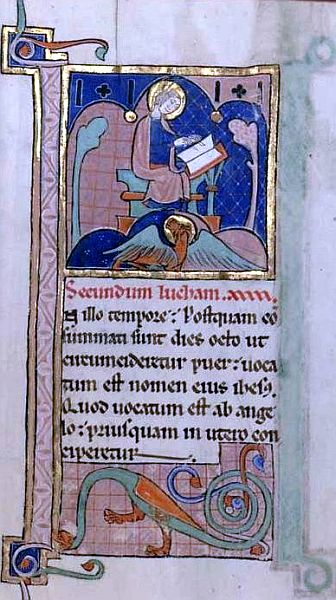 Secundum lucham. xxiiii.
In illo tempore: Postquam co
summati sunt dies octo ut
circumcideretur puer: uoca
tum est nomen eius ihesus.
Quod uocatum est ab ange
lo: priusquam in utero con
ciperetur